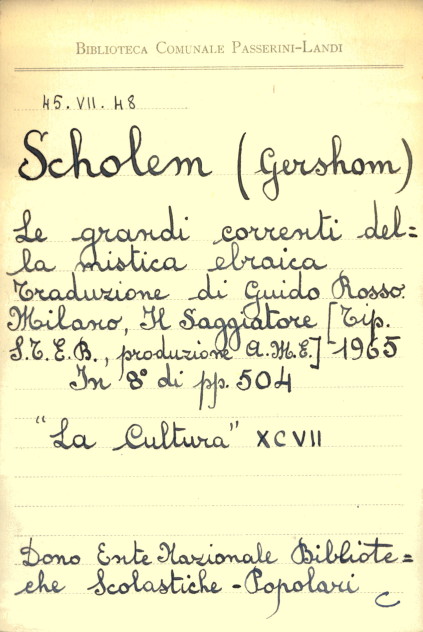 BIBLIOTECA COMUNALE PASSERINI-LANDI
45.VII.48
Scholem (Gershom)
Le grandi correnti del=
la mistica ebraica
Traduzione di Guido Rosso.
Milano, Il Saggiatore [Tip.
S.T.E.B., produzione A.M.E.] 1965
In 8° di pp. 504
"La Cultura" XCVII
Dono Ente Nazionale Bibliote=
che Scolastiche - Popolari C